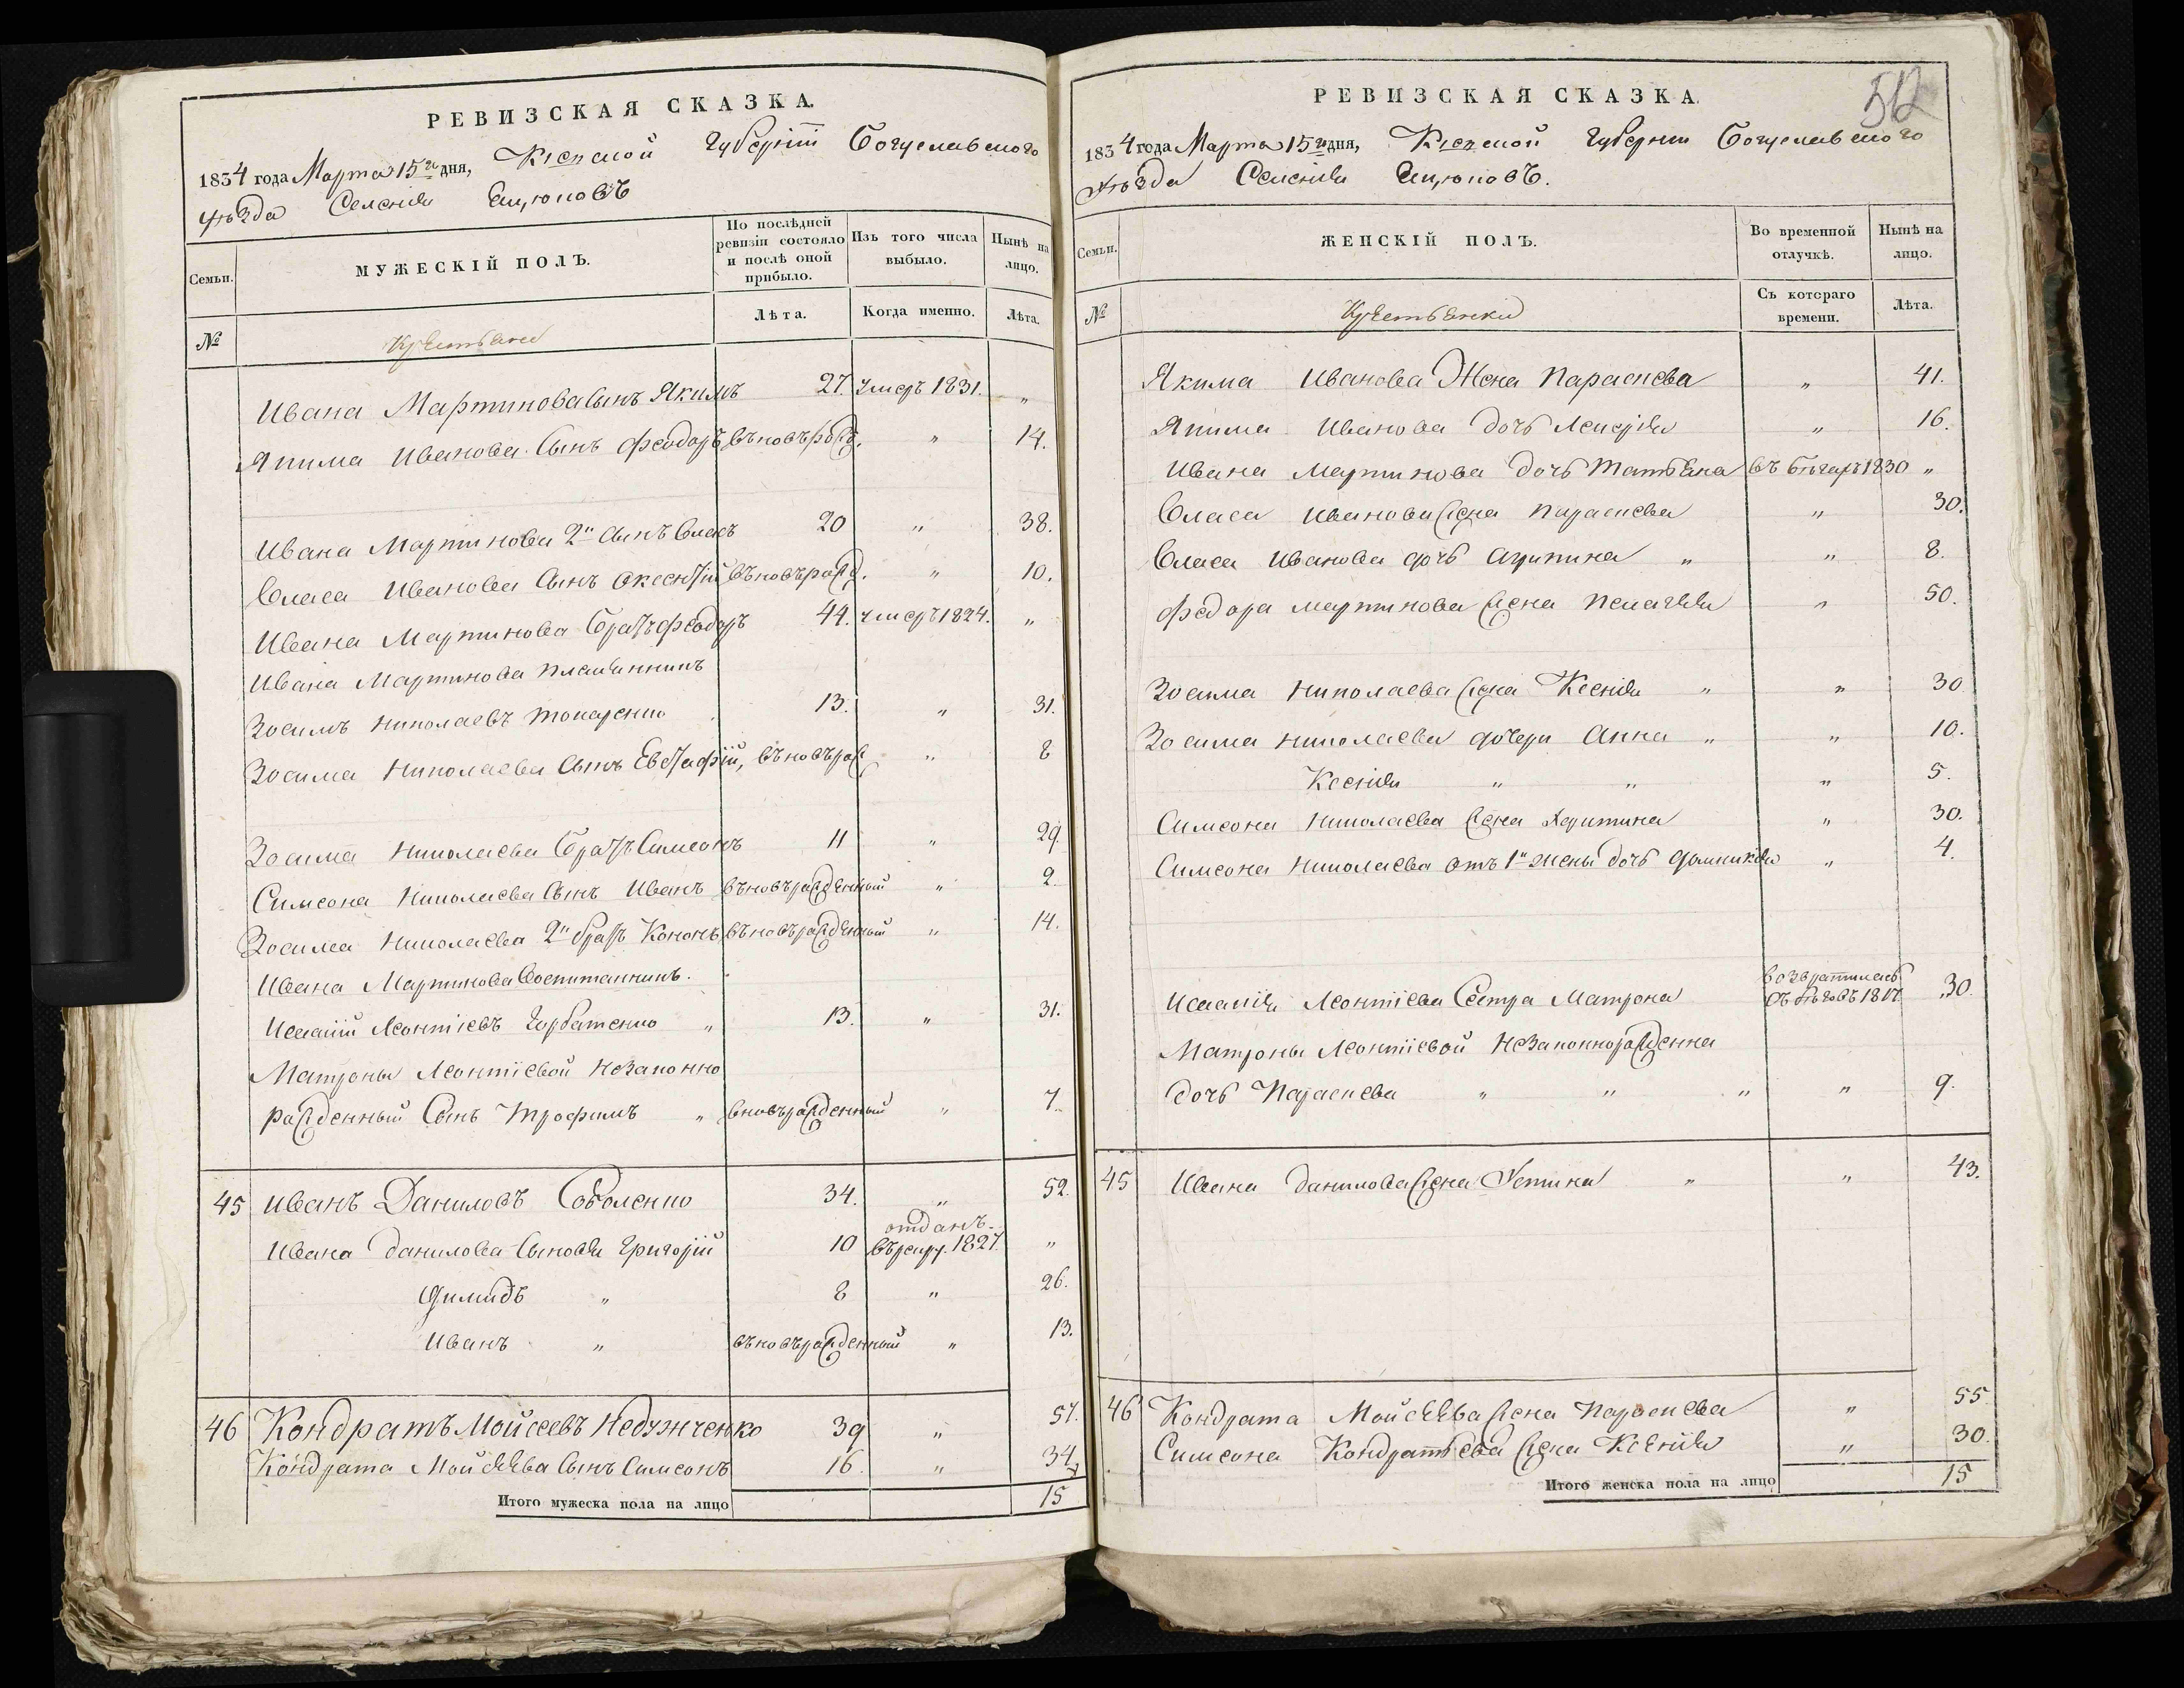 РЕВИЗСКАЯ СКАЗКА.
1834 года Марта 15го дня, Кіевской Губерніи Богуславского
Уѣзда Селенія Ецюковъ
Семьи.
МУЖЕСКІЙ ПОЛЪ.
По послѣдней ревизіи состояло и послѣ оной прибыло.
Изъ того числа выбыло.
Нынѣ на лицо.
№
Крестьяне
Лѣта.
Когда именно.
Лѣта.
Ивана Мартинова Сынъ Якимъ 27. умеръ 1831. "
Якима Иванова Сынъ Феодоръ въновьрожд. " 14.
Ивана Мартинова 2й Сынъ Власъ 20 " 38.
Власа Иванова Сынъ Аксентій въновьрожд. " 10.
Ивана Мартинова Братъ Феодоръ 44. умеръ 1824. "
Ивана Мартинова племянникъ
Зосимъ Николаевъ Токаренко 13. " 31.
Зосима Николаева Сынъ Евстафій, въновьрож " 8
Зосима Николаева Братъ Симеонъ 11 " 29.
Симеона Николаева Сынъ Иванъ въновьрожденный " 2.
Зосима Николаева 2й братъ Кононъ въновьрожденный " 14.
Ивана Мартинова Воспитанникъ.
Исаакій Леонтіевъ Горбатенко " 13. " 31.
Матроны Леонтіевой незаконно
рожденный Сынъ Трофимъ " вновьрожденный " 7.
45 Иванъ Даниловъ Соболенко 34. " 52.
Ивана Данилова Сыновья Григорій 10 отданъ въ рекру. 1827. "
Димидъ " 8 " 26.
Иванъ " въновьрожденный " 13.
46 Кондратъ Мойсеевъ Недужченко 39 " 57.
Кондрата Мойсеева Сынъ Симеонъ 16. " 34.
Итого мужеска пола на лицо 15
РЕВИЗСКАЯ СКАЗКА.
512
1834 года Марта 15го дня, Кіевской Губерніи Богуславского
Уѣзда Селенія Ецюковъ.
Семьи.
ЖЕНСКІЙ ПОЛЪ.
Во временной отлучкѣ.
Нынѣ на лицо.
№
Крестьянки
Съ котораго времени.
Лѣта.
Якима Иванова Жена Параскева " 41.
Якима Иванова дочь Лекерія " 16.
Ивана Мартинова дочь Татьяна въ бѣгахъ 1830 "
Власа Иванова жена Параскева " 30.
Власа Иванова дочь Агрипина " " 8.
Федора Мартинова жена Пелагея " 50.
Зосима Николаева жена Ксенія " " 30
Зосима Николаева дочери Анна " " 10.
Ксенія " " " 5.
Симеона Николаева жена Харитина " 30.
Симеона Николаева отъ 1й жены дочь Домникія " 4.
Исаакія Леонтіева Сестра Матрона возвратилась съ бѣговъ 1817 30
Матроны Леонтіевой незаконнорожденна
дочь Параскева " " " " 9.
45 Ивана Данилова жена Устина " " 43.
46 Кондрата Мойсеева жена Параскева " 55
Симеона Кондратьева жена Ксенія " 30.
Итого женска пола на лицо 15